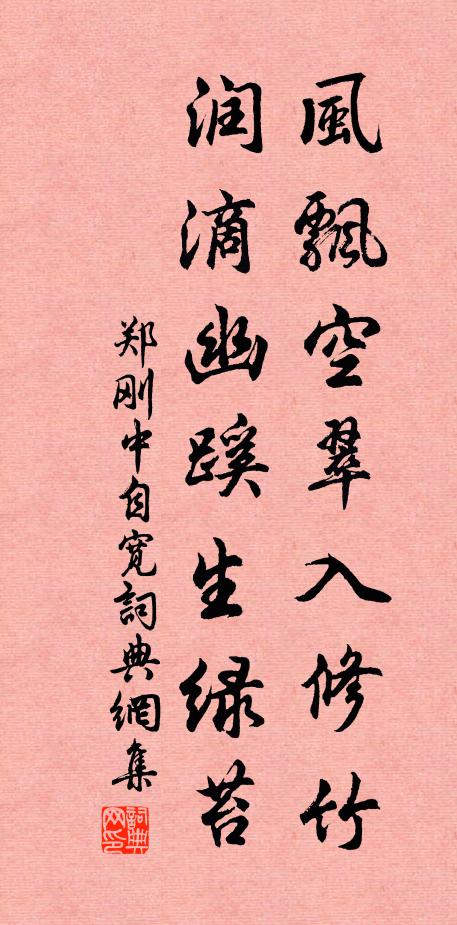 風飄空翠入修竹
润滴幽蹊生绿苔
郑刚中自寬詞典網集
詞典网印